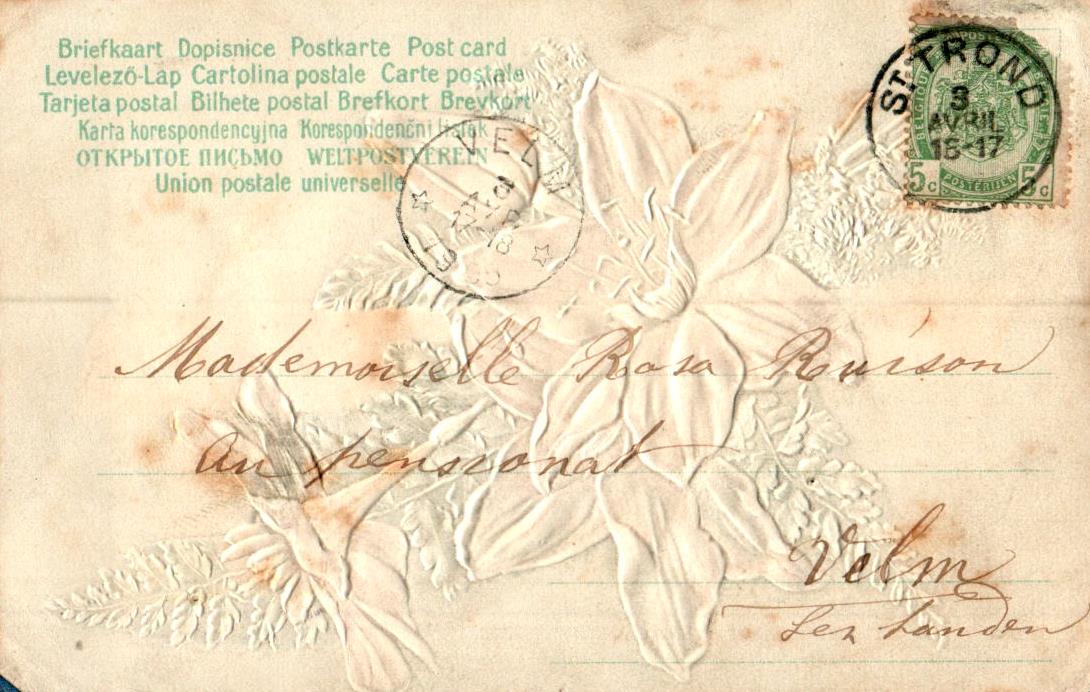 Briefkaart Dopisnice Postkarte Post card
Levelező-Lap Cartolina postale Carte postale
Tarjeta postal Bilhete postal Brefkort Brevkort
Karta korespondencyjna Korespondenční listek
ОТКРЫТОЕ ПИСЬМО WELTPOSTVEREIN
Union postale universelle
ST TROND
3
AVRIL
16-17
5c POSTERIJEN 5c
VELM
Mademoiselle Rosa Ruison
Au pensionat
Velm
Lez Landen